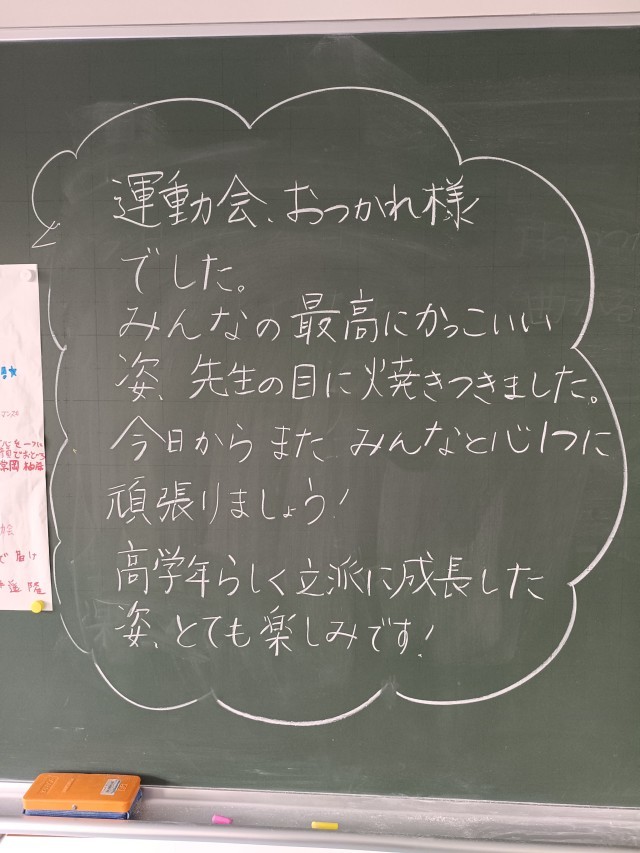 運動会、おつかれ様
でした。
みんなの最高にかっこいい
姿、先生の目に焼きつきました。
今日からまた みんなと心1つに
頑張りましょう!
高学年らしく立派に成長した
姿、とても楽しみです!